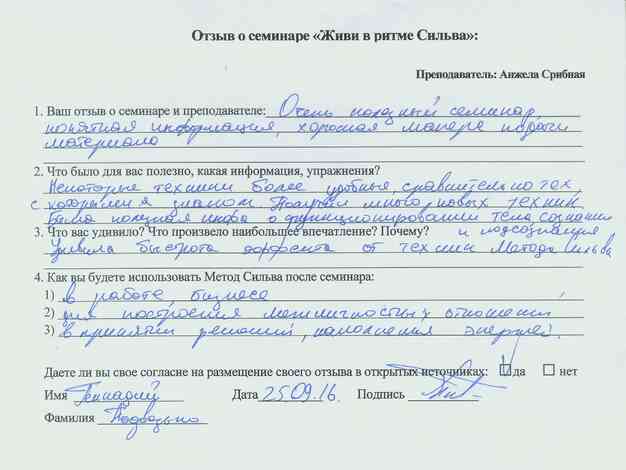 Отзыв о семинаре «Живи в ритме Сильва»:
Преподаватель: Анжела Срибная
1. Ваш отзыв о семинаре и преподавателе: Очень полезный семинар,
понятная информация, хорошая манера подачи
материала
2. Что было для вас полезно, какая информация, упражнения?
Некоторые техники более удобные, сравнительно тех,
с которыми я знаком. Получил много новых техник.
Была полезная инфа о функционировании тела сознания
3. Что вас удивило? Что произвело наибольшее впечатление? Почему? и подсознания
Удивила быстрота эффекта от техник Метода Сильва
4. Как вы будете использовать Метод Сильва после семинара:
1) в работе, бизнесе
2) для построения межличностных отношений
3) в принятии решений, наполнения энергией.
Даете ли вы свое согласие на размещение своего отзыва в открытых источниках: да нет
Имя Геннадий Дата 25.09.16. Подпись
Фамилия